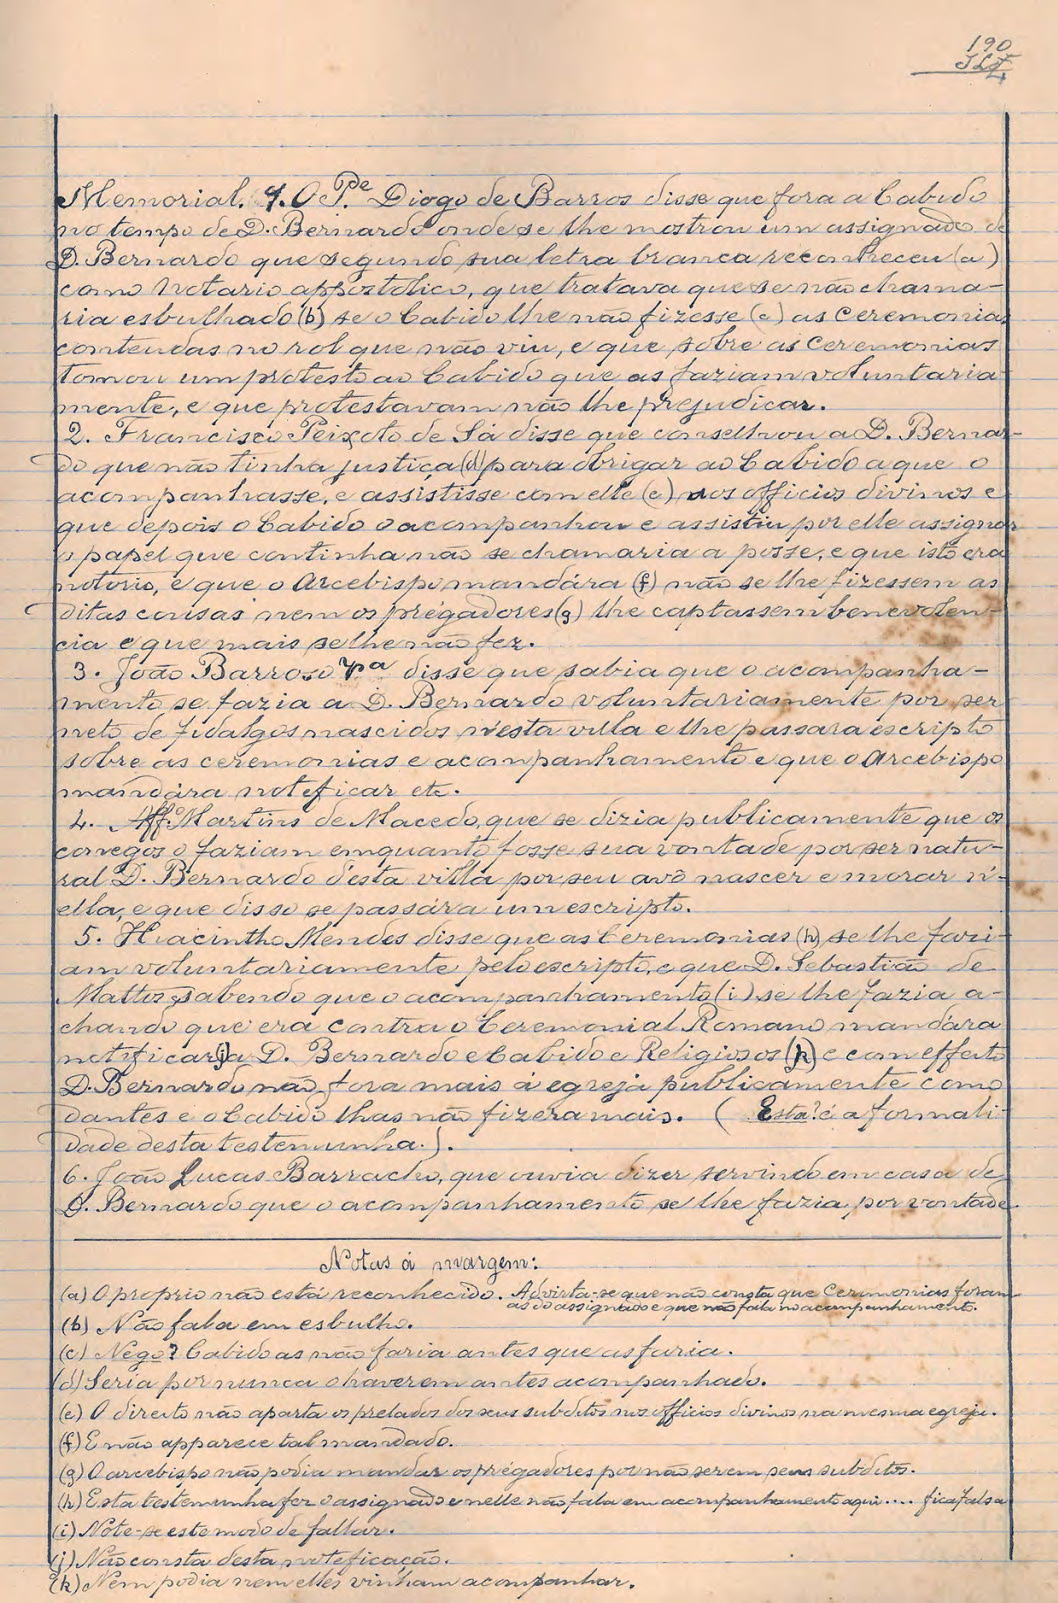 190
Memorial. 1. O Pe. Diogo de Barros disse que fora a Cabido
no tempo de D. Bernardo onde se lhe mostrou um assignado de
D. Bernardo que segundo sua letra branca reconheceu (a)
como Notario appostolico, que tratava que se não chama-
ria esbulhado (b) se o Cabido lhe não fizesse (c) as ceremonias
contendas no rol que não viu, e que sobre as ceremonias
tomou um protesto ao Cabido que as faziam voluntaria
mente, e que protestavam não lhe prejudicar.
2. Francisco Peixoto de Sá disse que conselhou a D. Bernar-
do que não tinha justiça (d) para obrigar ao Cabido a que o
acompanhasse, e assistisse com elle (e) nos officios divinos e
que depois o Cabido o acompanhou e assistiu por elle assignar
o papel que continha não se chamaria a posse, e que isto era
notorio, e que o Arcebispo mandára (f) não se lhe fizessem as
ditas cousas nem os prégadores (g) lhe captassem benevolen-
cia e que mais se lhe não fez.
3. João Barroso disse que sabia que o acompanha-
mento se fazia a D. Bernardo voluntariamente por ser
neto de fidalgos nascidos n'esta villa e lhe passara escripto
sobre as ceremonias e acompanhamento e que o Arcebispo
mandára noteficar etc.
4. Affº Martins de Macedo, que se dizia publicamente que os
conegos o faziam emquanto fosse sua vontade por ser natu-
ral D. Bernardo desta villa por seu avô nascer e morar n'
ella, e que disso se passára um escripto.
5. Hiacintho Mendes disse que as Ceremonias (h) se lhe fazi-
am voluntariamente pelo escripto, e que D. Sebastião de
Mattos sabendo que o acompanhamento (i) se lhe fazia a-
chando que era contra o Ceremonial Romano mandára
noteficar (j) a D. Bernardo e Cabido e Religiosos (k) e com effeito
D. Bernardo não fora mais á egreja publicamente como
dantes e o Cabido lhas não fizera mais. ( Esta? é a formali-
dade desta testemunha.).
6. João Lucas Barracho, que ouvia dizer servindo em casa de
D. Bernardo que o acompanhamento se lhe fazia por vontade
Notas á margem:
(a) O proprio não está reconhecido. Advirta-se que não consta que Ceremonias foram
as do assignado e que não fala no acompanhamento.
(b) Não fala em esbulho.
(c) Nego? Cabido as não faria antes que as faria.
(d) Seria por nunca o haverem antes acompanhado.
(e) O direito não aparta os prelados dos seus subditos nos officios divinos na mesma egreja.
(f) E não apparece tal mandado.
(g) O arcebispo não podia mandar os prégadores por não serem seus subditos.
(h) Esta testemunha fez o assignado e nelle não fala em acompanhamento aqui.... fica falsa
(i) Note-se este modo de fallar.
(j) Não consta desta noteficação.
(k) Nem podia nem elles vinham acompanhar.